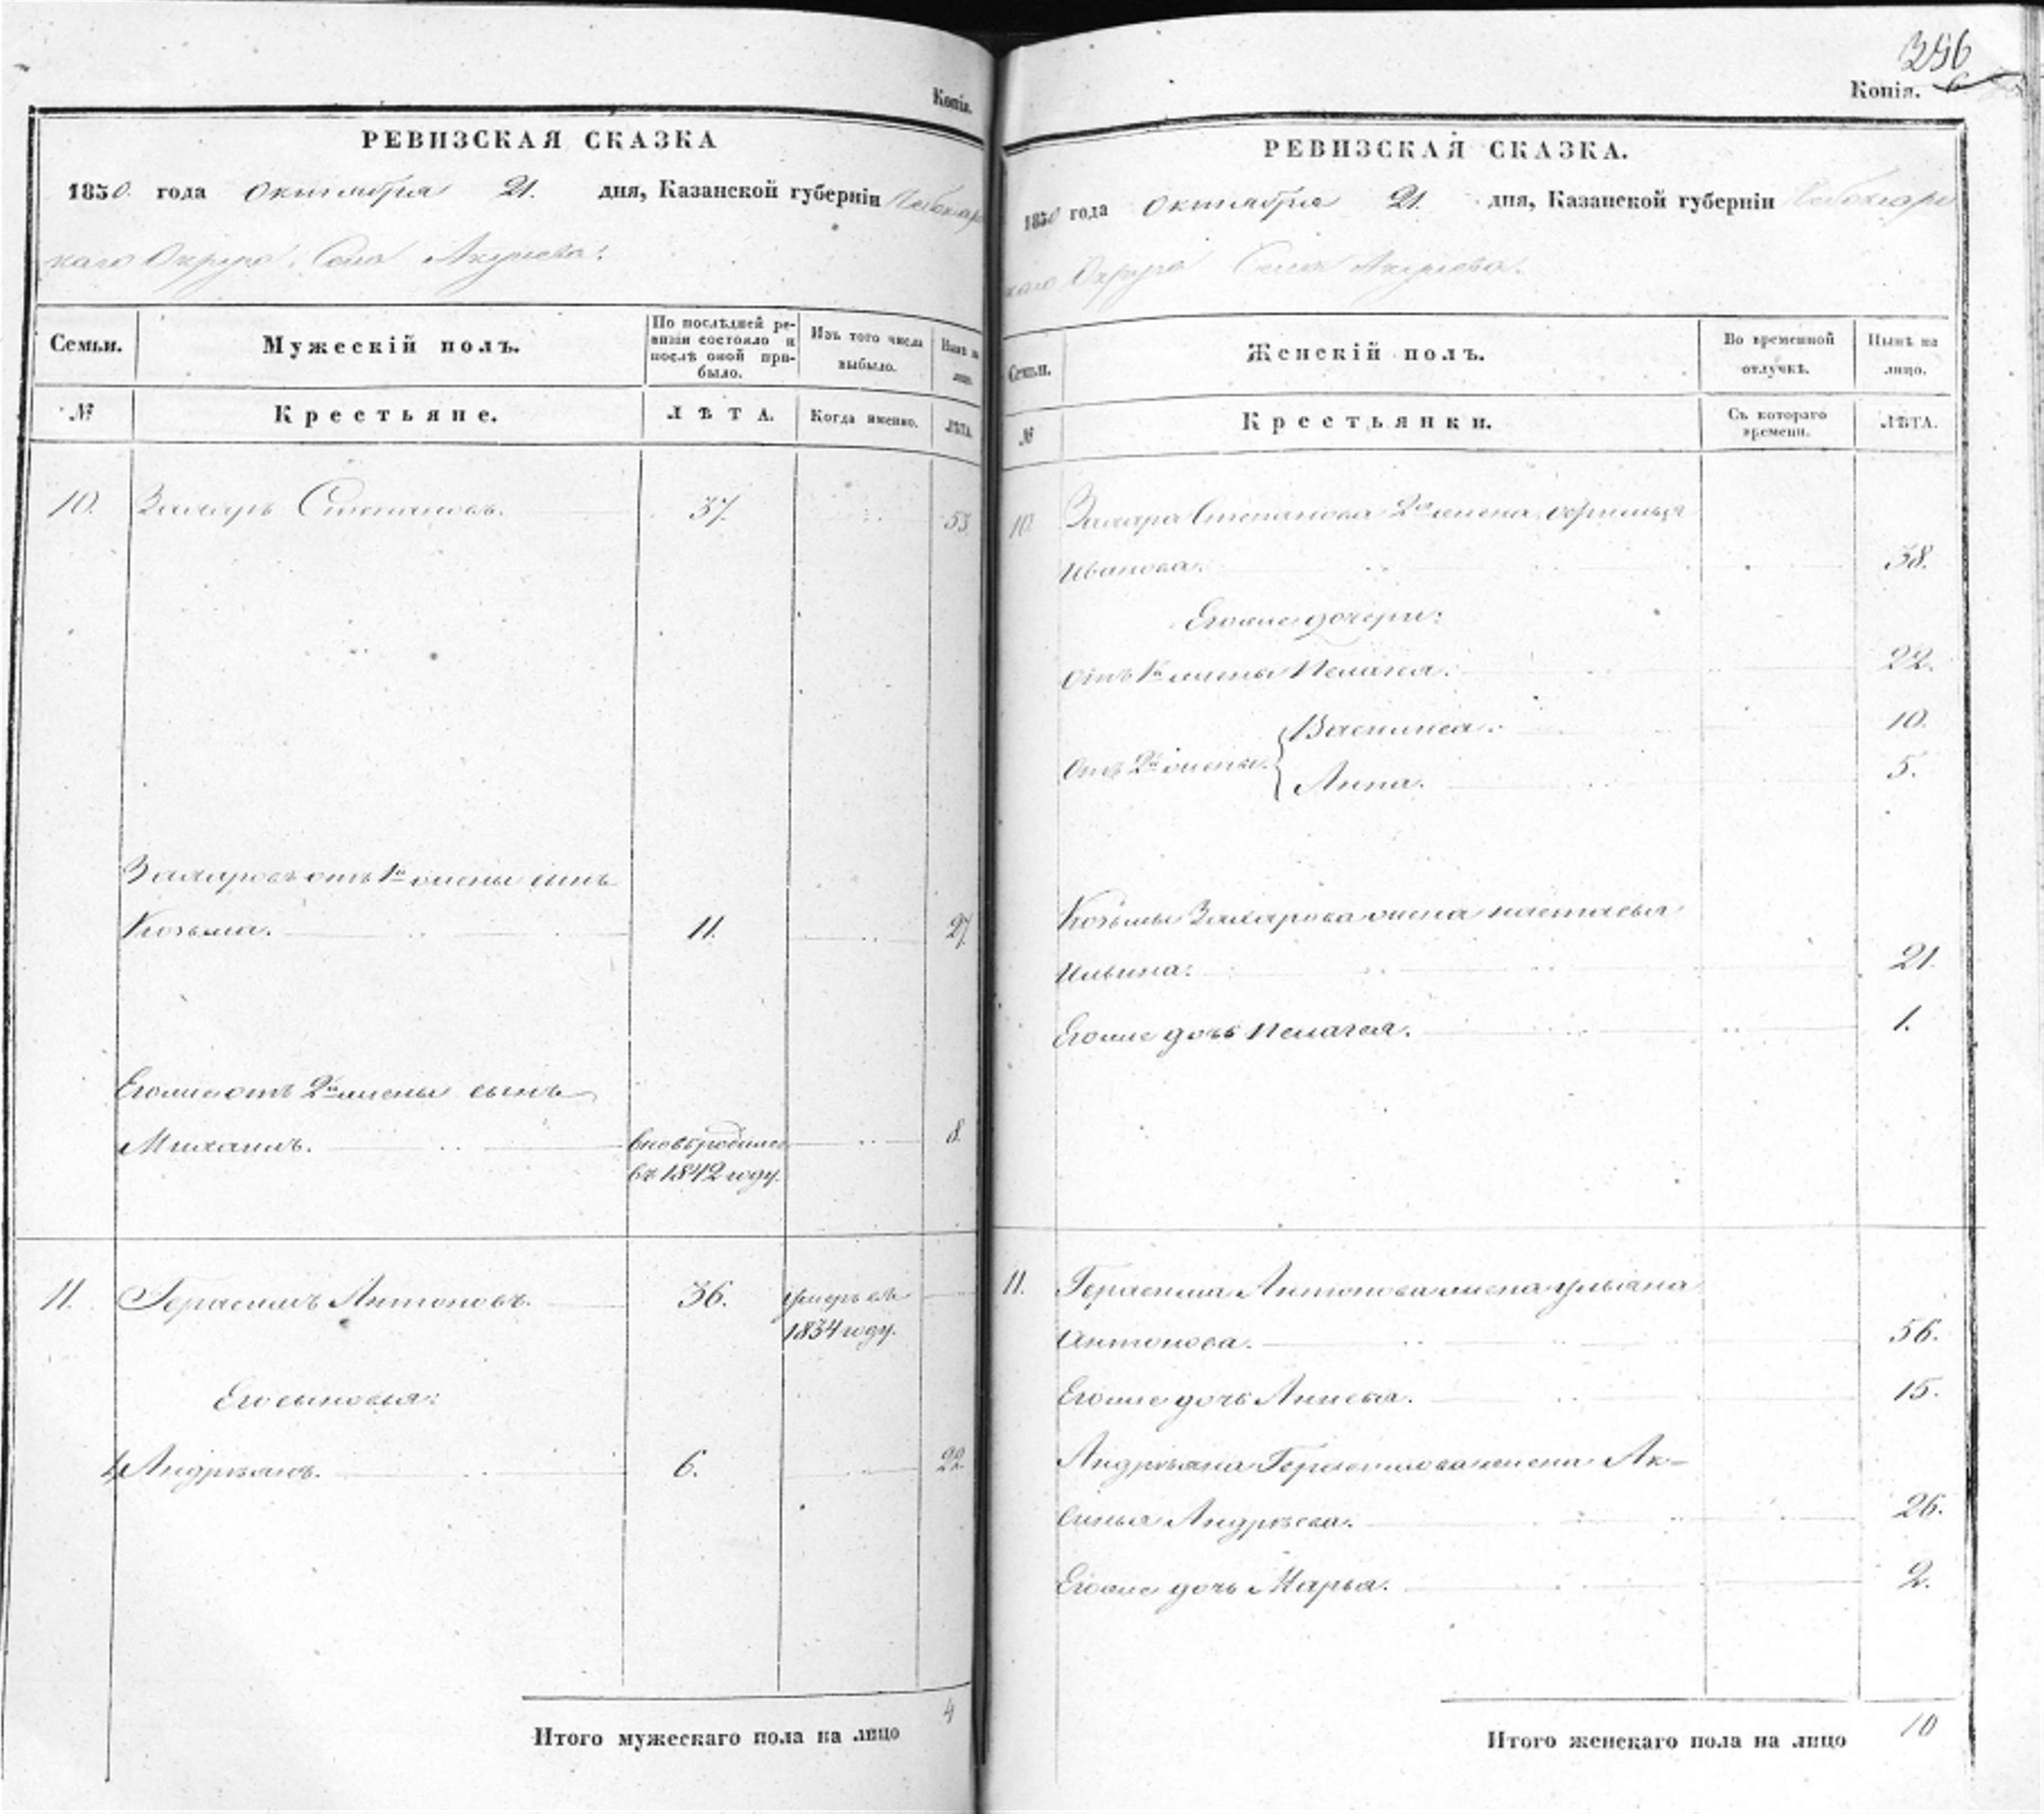 Копія.
РЕВИЗСКАЯ СКАЗКА
1850 года Октября 21. дня, Казанской губерніи Чебоксар
скаго Округа, Села Акулева:
Семьи.
Мужескій полъ.
По послѣдней ре-
визіи состояло и
послѣ оной при-
было.
Изъ того числа
выбыло.
Нынѣ на
лицо.
№
Крестьяне.
ЛѢТА.
Когда именно.
ЛѢТА.
10. Захаръ Степановъ. 37. 53
Захаровъ отъ 1й жены сынъ
Козьма. 11. 27
Его же отъ 2й жены сынъ
Михаилъ. вновьродился 8
въ 1842 году.
11. Герасимъ Антоновъ. 36. умеръ въ
1834 году.
Его сыновья:
1, Андреянъ. 6. 22
Итого мужескаго пола на лицо 4
356
Копія. 6
РЕВИЗСКАЯ СКАЗКА.
1850 года Октября 21. дня, Казанской губерніи Чебоксар
скаго Округа Села Акулева.
Семьи.
Женскій полъ.
Во временной
отлучкѣ.
Нынѣ на
лицо.
№
Крестьянки.
Съ котораго
времени.
ЛѢТА.
10. Захара Степанова 2я жена
Иванова. 38.
Его же дочери:
Отъ 1й жены Пелагея. 22.
Отъ 2й жены { Василиса. 10.
Анна. 5.
Козьмы Захарова жена настасья
Ильина: 21.
Его же дочь Пелагея. 1.
11. Герасима Антонова жена ульяна
Антонова. 56.
Его же дочь Анисья. 15.
Андреяна Герасимова жена Ак-
синья Андрѣева. 26.
Его же дочь Марья. 2.
Итого женскаго пола на лицо 10